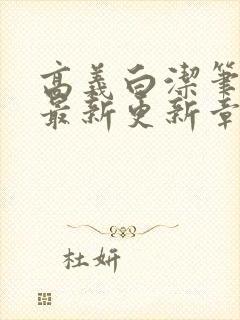 高義白潔筆
最新更新章
杜妍